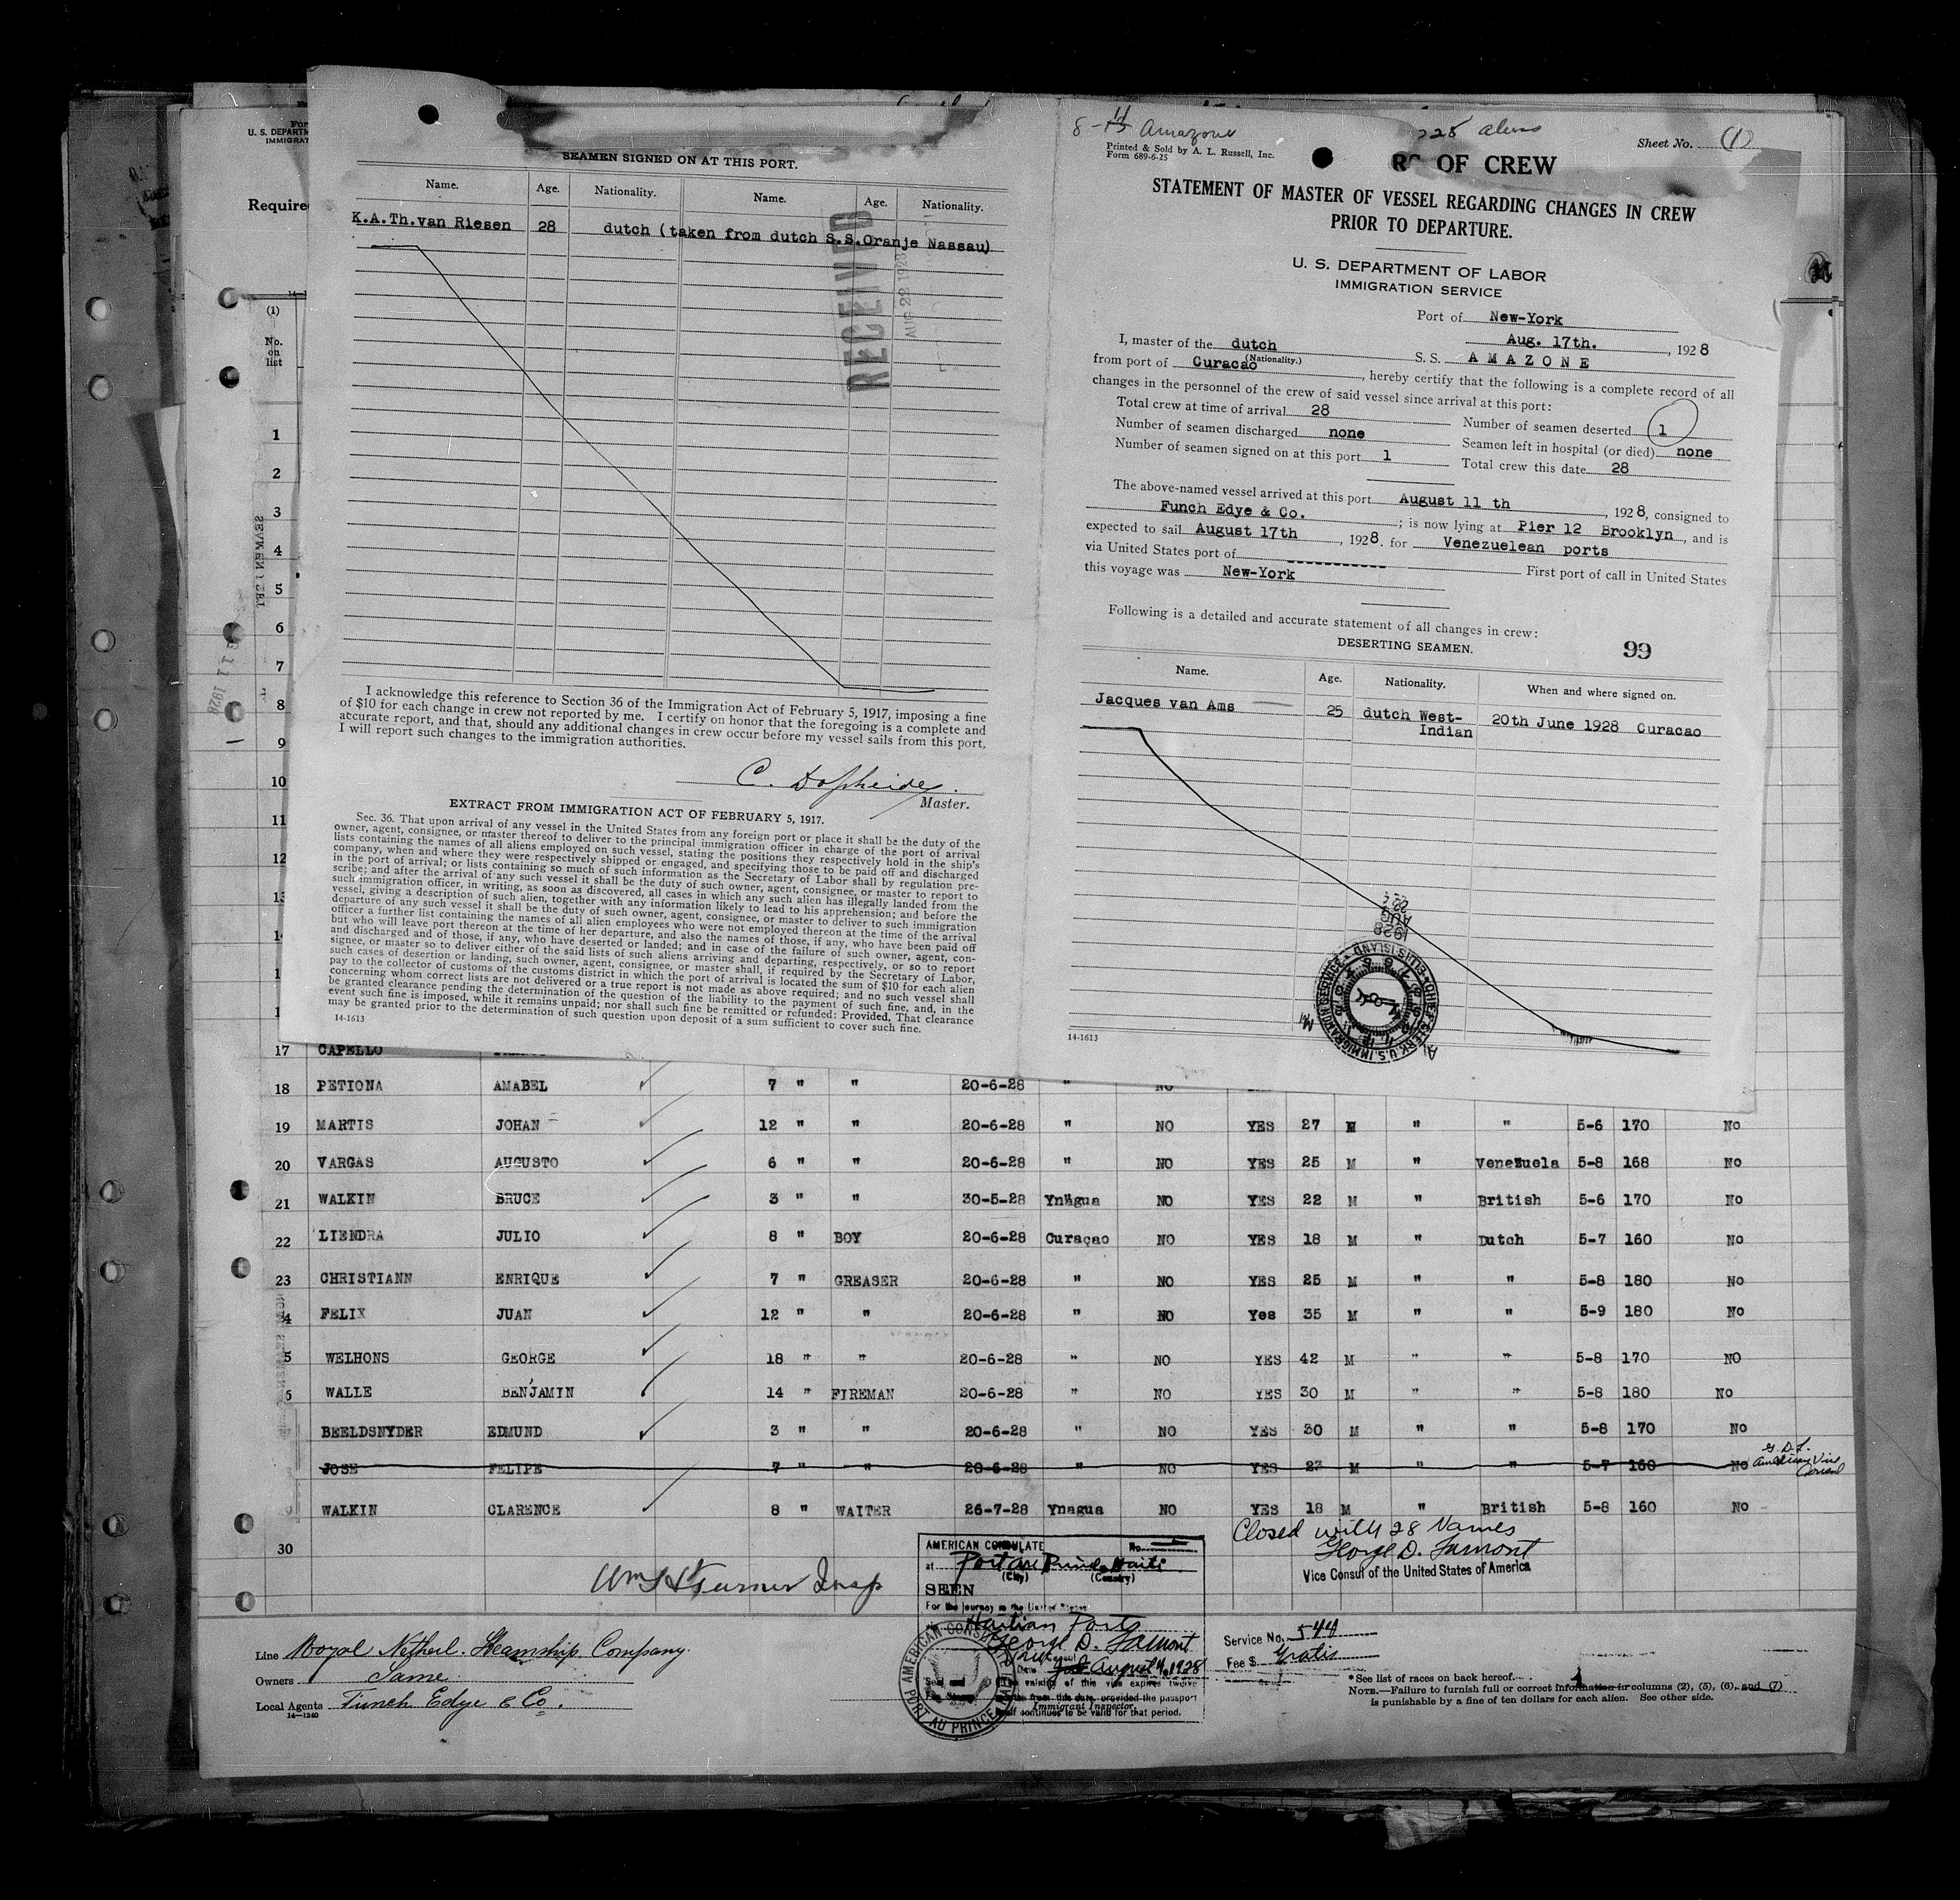 U. S. DEPARTM
IMMIGRAT
Require
(1)
No.
on
list
1
2
3
4
5
6
7
8
9
10
11
12
13
SEAMEN SIGNED ON AT THIS PORT.
Name. Age. Nationality. Name. Age. Nationality.
K.A.Th.van Riesen 28 dutch (taken from dutch S.S.Oranje Nassau)
RECEIVED
AUG 22 1928
I acknowledge this reference to Section 36 of the Immigration Act of February 5, 1917, imposing a fine
of $10 for each change in crew not reported by me. I certify on honor that the foregoing is a complete and
accurate report, and that, should any additional changes in crew occur before my vessel sails from this port,
I will report such changes to the immigration authorities.
Master.
EXTRACT FROM IMMIGRATION ACT OF FEBRUARY 5, 1917.
Sec. 36. That upon arrival of any vessel in the United States from any foreign port or place it shall be the duty of the
owner, agent, consignee, or master thereof to deliver to the principal immigration officer in charge of the port of arrival
lists containing the names of all aliens employed on such vessel, stating the positions they respectively hold in the ship's
company, when and where they were respectively shipped or engaged, and specifying those to be paid off and discharged
in the port of arrival; or lists containing so much of such information as the Secretary of Labor shall by regulation pre-
scribe; and after the arrival of any such vessel it shall be the duty of such owner, agent, consignee, or master to report to
such immigration officer, in writing, as soon as discovered, all cases in which any such alien has illegally landed from the
vessel, giving a description of such alien, together with any information likely to lead to his apprehension; and before the
departure of any such vessel it shall be the duty of such owner, agent, consignee, or master to deliver to such immigration
officer a further list containing the names of all alien employees who were not employed thereon at the time of the arrival
but who will leave port thereon at the time of her departure, and also the names of those, if any, who have been paid off
and discharged and of those, if any, who have deserted or landed; and in case of the failure of such owner, agent, con-
signee, or master so to deliver either of the said lists of such aliens arriving and departing, respectively, or so to report
such cases of desertion or landing, such owner, agent, consignee, or master shall, if required by the Secretary of Labor,
pay to the collector of customs of the customs district in which the port of arrival is located the sum of $10 for each alien
concerning whom correct lists are not delivered or a true report is not made as above required; and no such vessel shall
be granted clearance pending the determination of the question of the liability to the payment of such fine, and, in the
event such fine is imposed, while it remains unpaid; nor shall such fine be remitted or refunded: Provided, That clearance
may be granted prior to the determination of such question upon deposit of a sum sufficient to cover such fine.
14-1613
Amazone
225 aliens
Sheet No. (1)
Printed & Sold by A. L. Russell, Inc.
Form 689-6-25
OF CREW
STATEMENT OF MASTER OF VESSEL REGARDING CHANGES IN CREW
PRIOR TO DEPARTURE.
U. S. DEPARTMENT OF LABOR
IMMIGRATION SERVICE
Port of New-York
Aug. 17th. , 1928
I, master of the dutch S. S. AMAZONE
(Nationality.)
from port of Curacao , hereby certify that the following is a complete record of all
changes in the personnel of the crew of said vessel since arrival at this port:
Total crew at time of arrival 28 Number of seamen deserted 1
Number of seamen discharged none Seamen left in hospital (or died) none
Number of seamen signed on at this port 1 Total crew this date 28
The above-named vessel arrived at this port August 11 th , 1928, consigned to
Funch Edye & Co. ; is now lying at Pier 12 Brooklyn, and is
expected to sail August 17th , 1928. for Venezuelean ports
via United States port of First port of call in United States
this voyage was New-York
Following is a detailed and accurate statement of all changes in crew:
DESERTING SEAMEN.
99
Name. Age. Nationality. When and where signed on.
Jacques van Ams 25 dutch West-Indian 20th June 1928 Curacao
1928
AUG
14-1613
17 CAPELLO
18 PETIONA AMABEL 7 " " 20-6-28 " NO
19 MARTIS JOHAN 12 " " 20-6-28 " NO YES 27 M " " 5-6 170 No
20 VARGAS AUGUSTO 6 " " 20-6-28 " NO YES 25 M " Venezuela 5-8 168 No
21 WALKIN BRUCE 3 " " 30-5-28 Ynagua NO YES 22 M " British 5-6 170 No
22 LIENDRA JULIO 8 " BOY 20-6-28 Curaçao NO YES 18 M " Dutch 5-7 160 No
23 CHRISTIANN ENRIQUE 7 " GREASER 20-6-28 " NO YES 25 M " " 5-8 180 No
4 FELIX JUAN 12 " " 20-6-28 " NO Yes 35 M " " 5-9 180 No
5 WELHONS GEORGE 18 " " 20-6-28 " NO YES 42 M " " 5-8 170 NO
6 WALLE BENJAMIN 14 " FIREMAN 20-6-28 " NO YES 30 M " " 5-8 180 No
BEELDSNYDER EDMUND 3 " " 20-6-28 " NO YES 30 M " " 5-8 170 No
JOSE FELIPE 7 " " 20-6-28 " NO YES 23 M " " 5-7 160 No
G. D. L.
American Vice
Consul
WALKIN CLARENCE 8 " WAITER 26-7-28 Ynagua NO YES 18 M " British 5-8 160 No
30
Closed with 28 Names
George D. Lamont
Vice Consul of the United States of America
Wm H Turner Insp
AMERICAN CONSULATE No.
at Port au Prince, Haiti
(City) (Country)
SEEN
For the journey to the United States
Haitian Ports
George D. Lamont
August 4, 1928
The validity of this visa expires twelve
months from this date, provided the passport
Immigrant Inspector.
itself continues to be valid for that period.
AMERICAN CONSULATE PORT AU PRINCE
Service No. 544
Fee $ Gratis
Line Royal Netherl. Steamship Company.
Owners Same
Local Agents Funch Edye & Co.
14—1240
*See list of races on back hereof.
NOTE.—Failure to furnish full or correct information in columns (2), (5), (6), and (7)
is punishable by a fine of ten dollars for each alien. See other side.